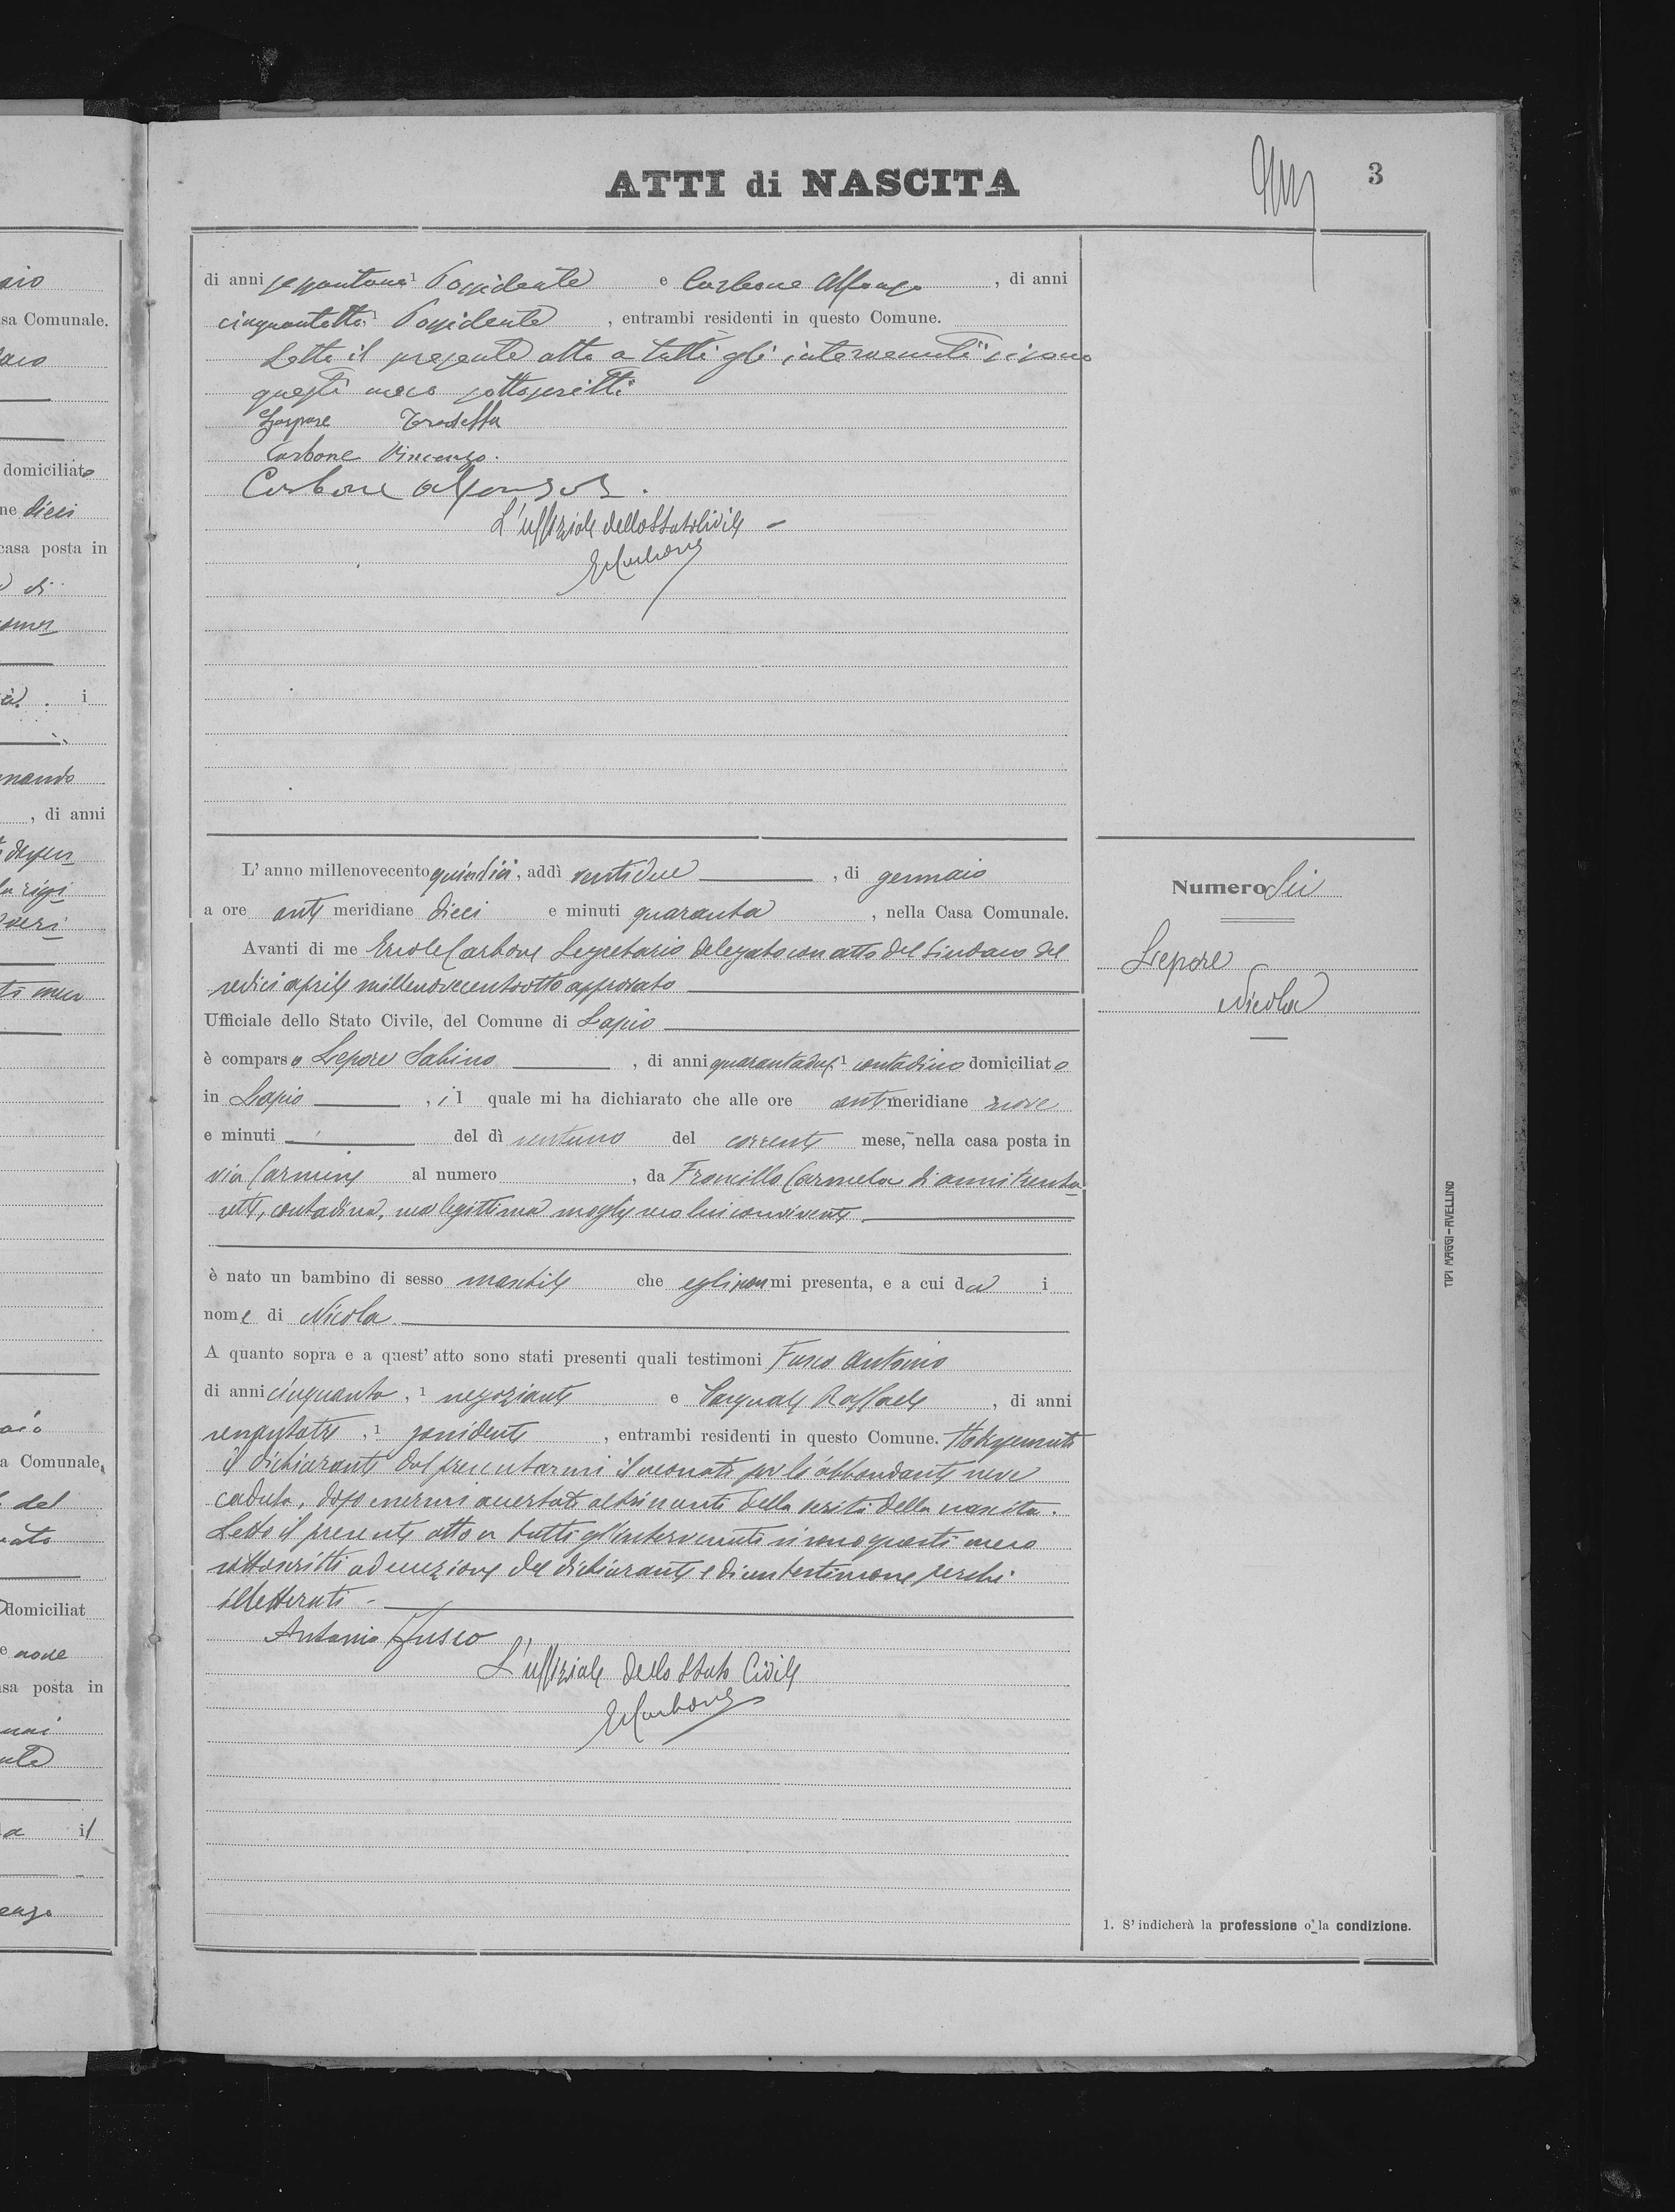 ATTI di NASCITA
3
di anni sessantuno 1 Possidente e Carbone Alfonso, di anni
cinquantotto 1 Possidente, entrambi residenti in questo Comune.
Letto il presente atto a tutti gli intervenuti si sono
questi meco sottoscritti
Gaspare Trodella
Carbone Vincenzo.
Carbone Alfonso.
L'uffiziale dello Stato Civile -
ECarbone
L'anno millenovecento quindici, addì ventidue, di gennaio
a ore anti meridiane dieci e minuti quaranta, nella Casa Comunale.
Avanti di me Ercole Carbone Segretario delegato con atto del Sindaco del
sedici aprile millenovecentootto approvato
Ufficiale dello Stato Civile, del Comune di Lapio
è comparso Lepore Sabino, di anni quarantadue, 1 contadino domiciliato
in Lapio, il quale mi ha dichiarato che alle ore antimeridiane nove
e minuti del dì ventuno del corrente mese, nella casa posta in
via Carmine al numero, da Fromillo Carmela di anni trenta
sette, contadina, sua legittima moglie seco lui convivente
è nato un bambino di sesso maschile che egli non mi presenta, e a cui da i
nome di Nicola
A quanto sopra e a quest'atto sono stati presenti quali testimoni Fusco Antonio
di anni cinquanta, 1 negoziante e Pasquale Raffaele, di anni
sessantatre, 1 possidente, entrambi residenti in questo Comune. Ho dispensato
il dichiarante dal presentarmi il neonato per l'abbondante neve
caduta, dopo essermi accertato altrimenti della verità della nascita.
Letto il presente atto a tutti gl'intervenuti si sono questi meco
sottoscritti ad eccezione del dichiarante e di un testimone perchè
illetterati -
Antonio Fusco
L'uffiziale dello Stato Civile
ECarbone
Numero Sei
Lepore
Nicola
1. S'indicherà la professione o la condizione.
TIPI MAGGI-AVELLINO